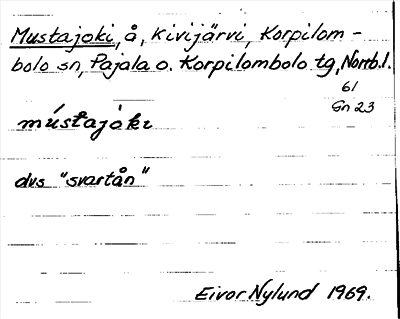 Mustajoki, å, Kivijärvi, Korpilom-
bolo sn, Pajala o. Korpilombolo tg, Norrb.l.
61
Gn 23
mústajòkı
dvs "svartån"
Eivor Nylund 1969.